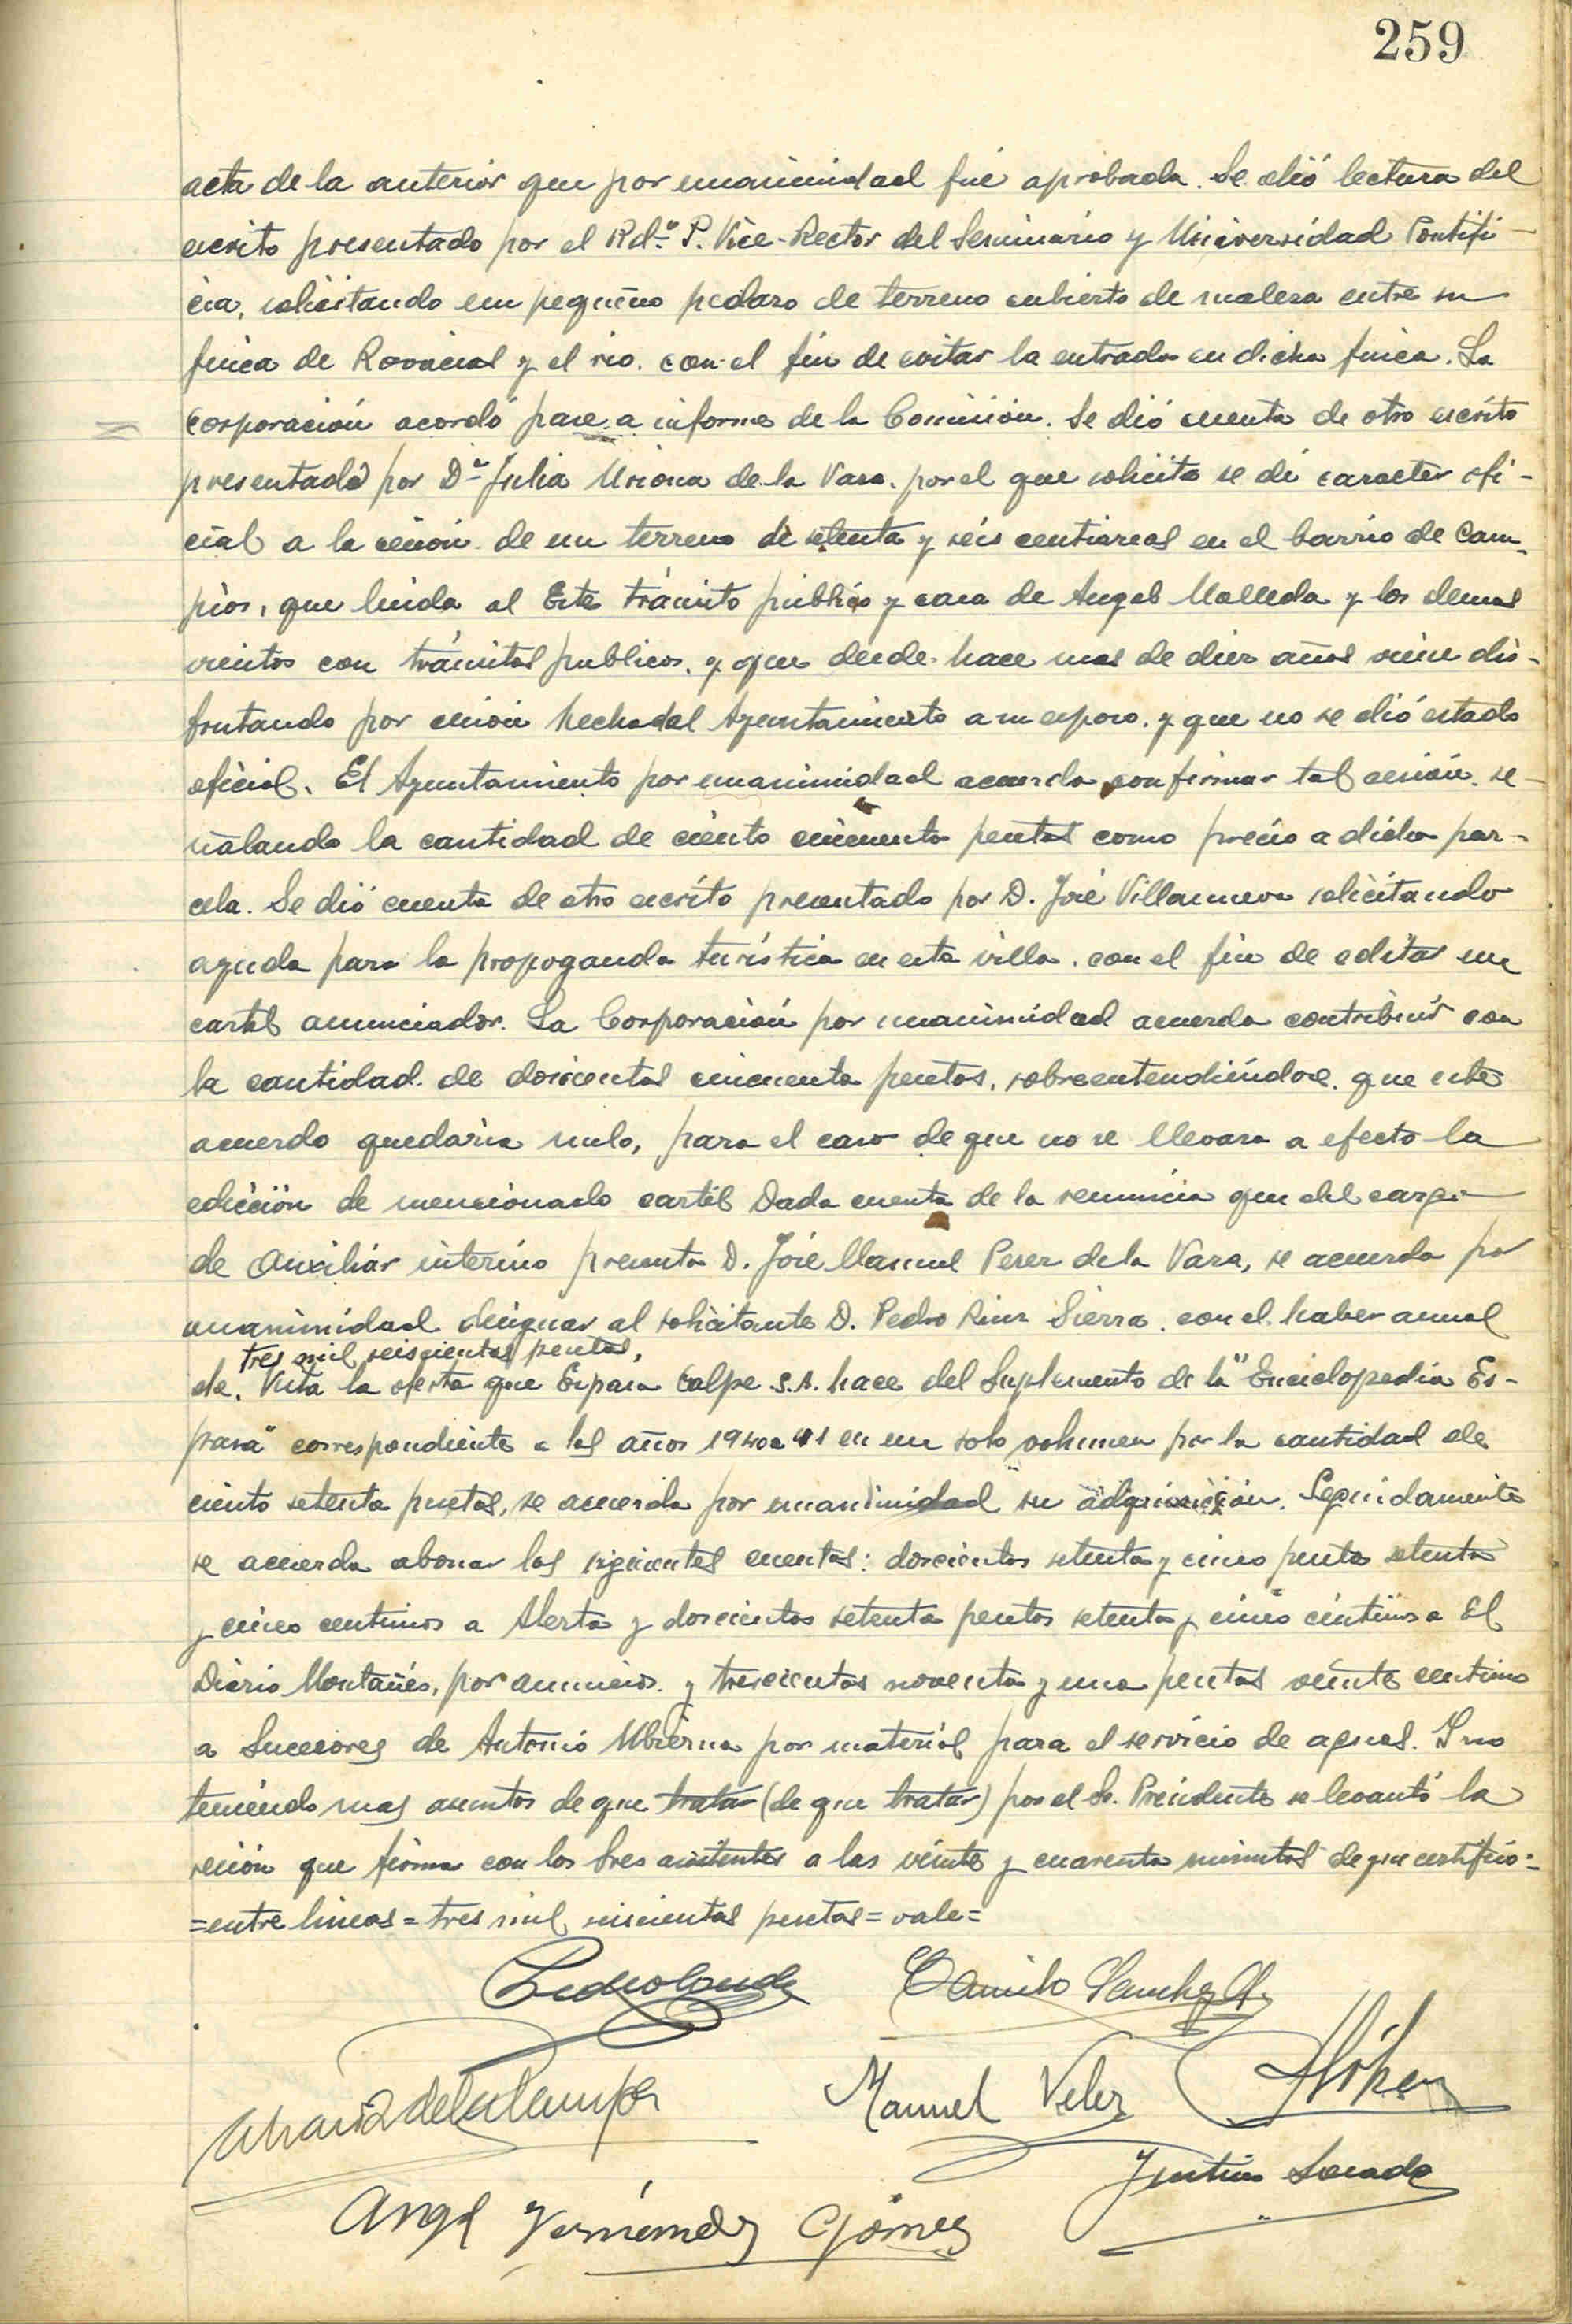 259
acta de la anterior que por unanimidad fué aprobada. Se dió lectura del
escrito presentado por el Rdº P. Vice-Rector del Seminario y Universidad Pontifi-
cia, solicitando un pequeño pedazo de terreno cubierto de maleza entre su
finca de Rovacias y el rio. con el fin de evitar la entrada en dicha finca. La
Corporación acordó pase a informe de la Comisión. Se dió cuenta de otro escrito
presentado por Dª Julia de la Vara, por el que solicita se dé caracter ofi-
cial a la cesión de un terreno de setenta y seis centiareas en el barrio de Cam-
pios, que linda al Este tránsito público y casa de Angel Molleda y los demas
vientos con tránsitos publicos, y que desde hace mas de diez años viene dis-
frutando por cesión hecha del Ayuntamiento a su esposo. y que no se dió estado
oficial. El Ayuntamiento por unanimidad acuerda confirmar tal cesión. se-
ñalando la cantidad de ciento cincuenta pesetas como precio a dicha par-
cela. Se dió cuenta de otro escrito presentado por D. José Villanueva solicitando
ayuda para la propoganda turística en esta villa. con el fin de editar un
cartel anunciador. La Corporación por unanimidad acuerda contribuir con
la cantidad de doscientas cincuenta pesetas, sobreentendiéndose que este
acuerdo quedaria nulo, para el caso de que no se llevara a efecto la
edicción de mencionado cartel Dada cuenta de la renuncia que del cargo
de Auxiliar interino presenta D. José Manuel Perez de la Vara, se acuerda por
unanimidad designar al solicitante D. Pedro Ruiz Sierra. con el haber anual
tres mil seiscientas pesetas,
de. Vista la oferta que Espasa Calpe S.A. hace del Suplemento de la "Enciclopedia Es-
pasa" correspondiente a los años 1940 a 41 en un solo volumen por la cantidad de
ciento setenta pesetas, se acuerda por unanimidad su adquisición. Seguidamente
se acuerda abonar las siguientes cuentas: doscientas setenta y cinco pesetas setenta
y cinco centimos a Alerta y doscientas setenta pesetas setenta y cinco céntimos a El
Diario Montañés, por anuncios. y trescientas noventa y una pesetas veinte centimos
a Sucesores de Antonio Ubierna por material para el servicio de aguas. Y no
teniendo mas asuntos de que tratar (de que tratar) por el Sr. Presidente se levantó la
sesión que firma con los Sres asistentes a las veinte y cuarenta minutos de que certifico:=
=entre lineas = tres mil seiscientas pesetas = vale =
Pedro Conde Camilo Sanchez
Maria de la Campa Manuel Velez
Justino
Angel Fernández Gómez